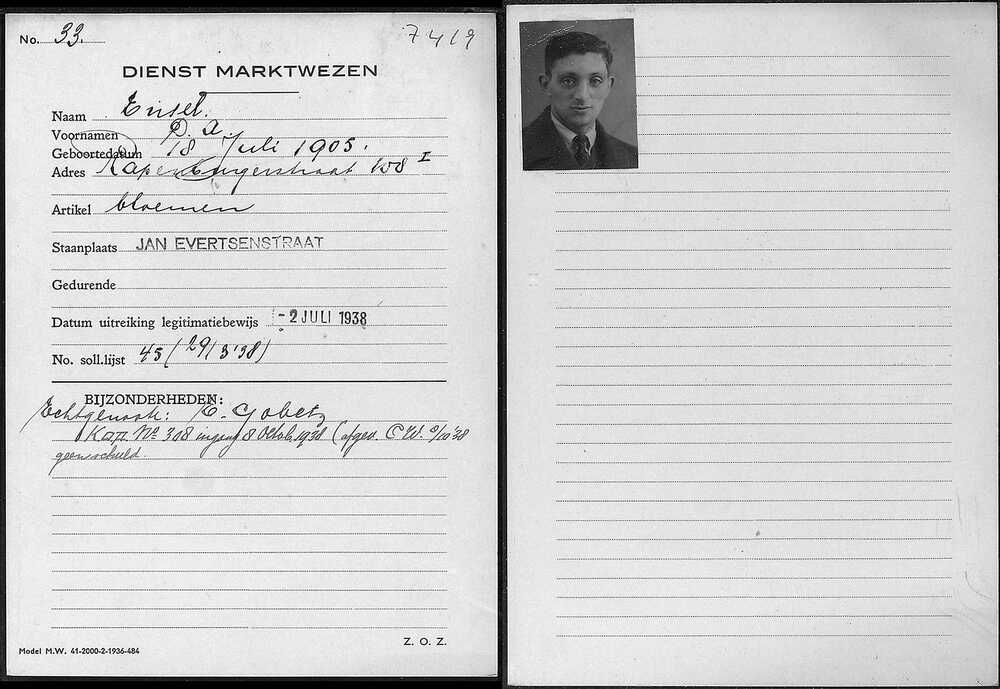 No. 33.
7419
DIENST MARKTWEZEN
Naam Ensel.
Voornamen D. A.
Geboortedatum 18 Juli 1905.
Adres Rapenburgerstraat 108 I
Artikel bloemen
Staanplaats JAN EVERTSENSTRAAT
Gedurende
Datum uitreiking legitimatiebewijs -2 JULI 1938
No. soll.lijst 45 (29/3'38)
BIJZONDERHEDEN:
Echtgenoote: E. Gobetz
No 308 ingeg 8 Octob 1938 (afgev. C.W.
geen schuld.
Z. O. Z.
Model M.W. 41-2000-2-1936-484